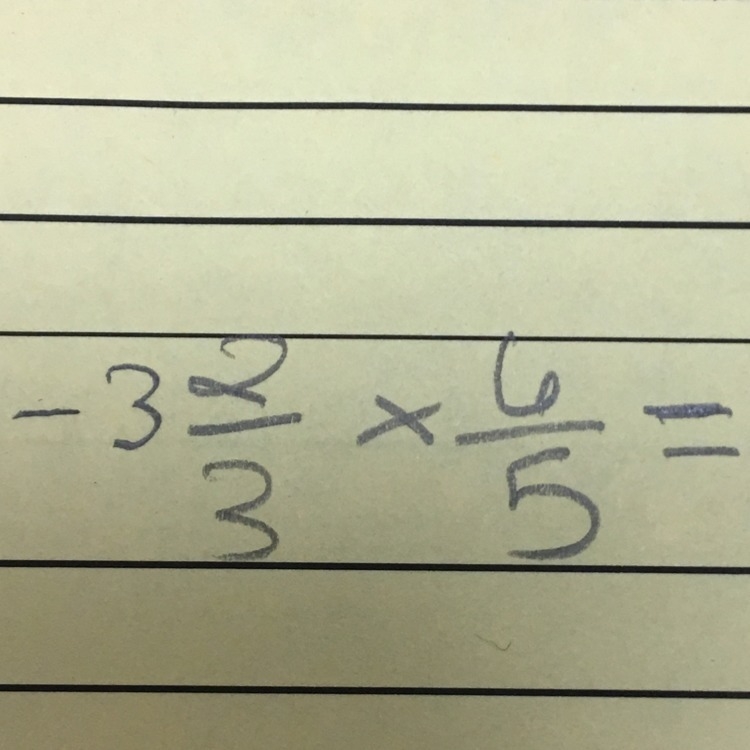 -3 2/3 × 6/5 =